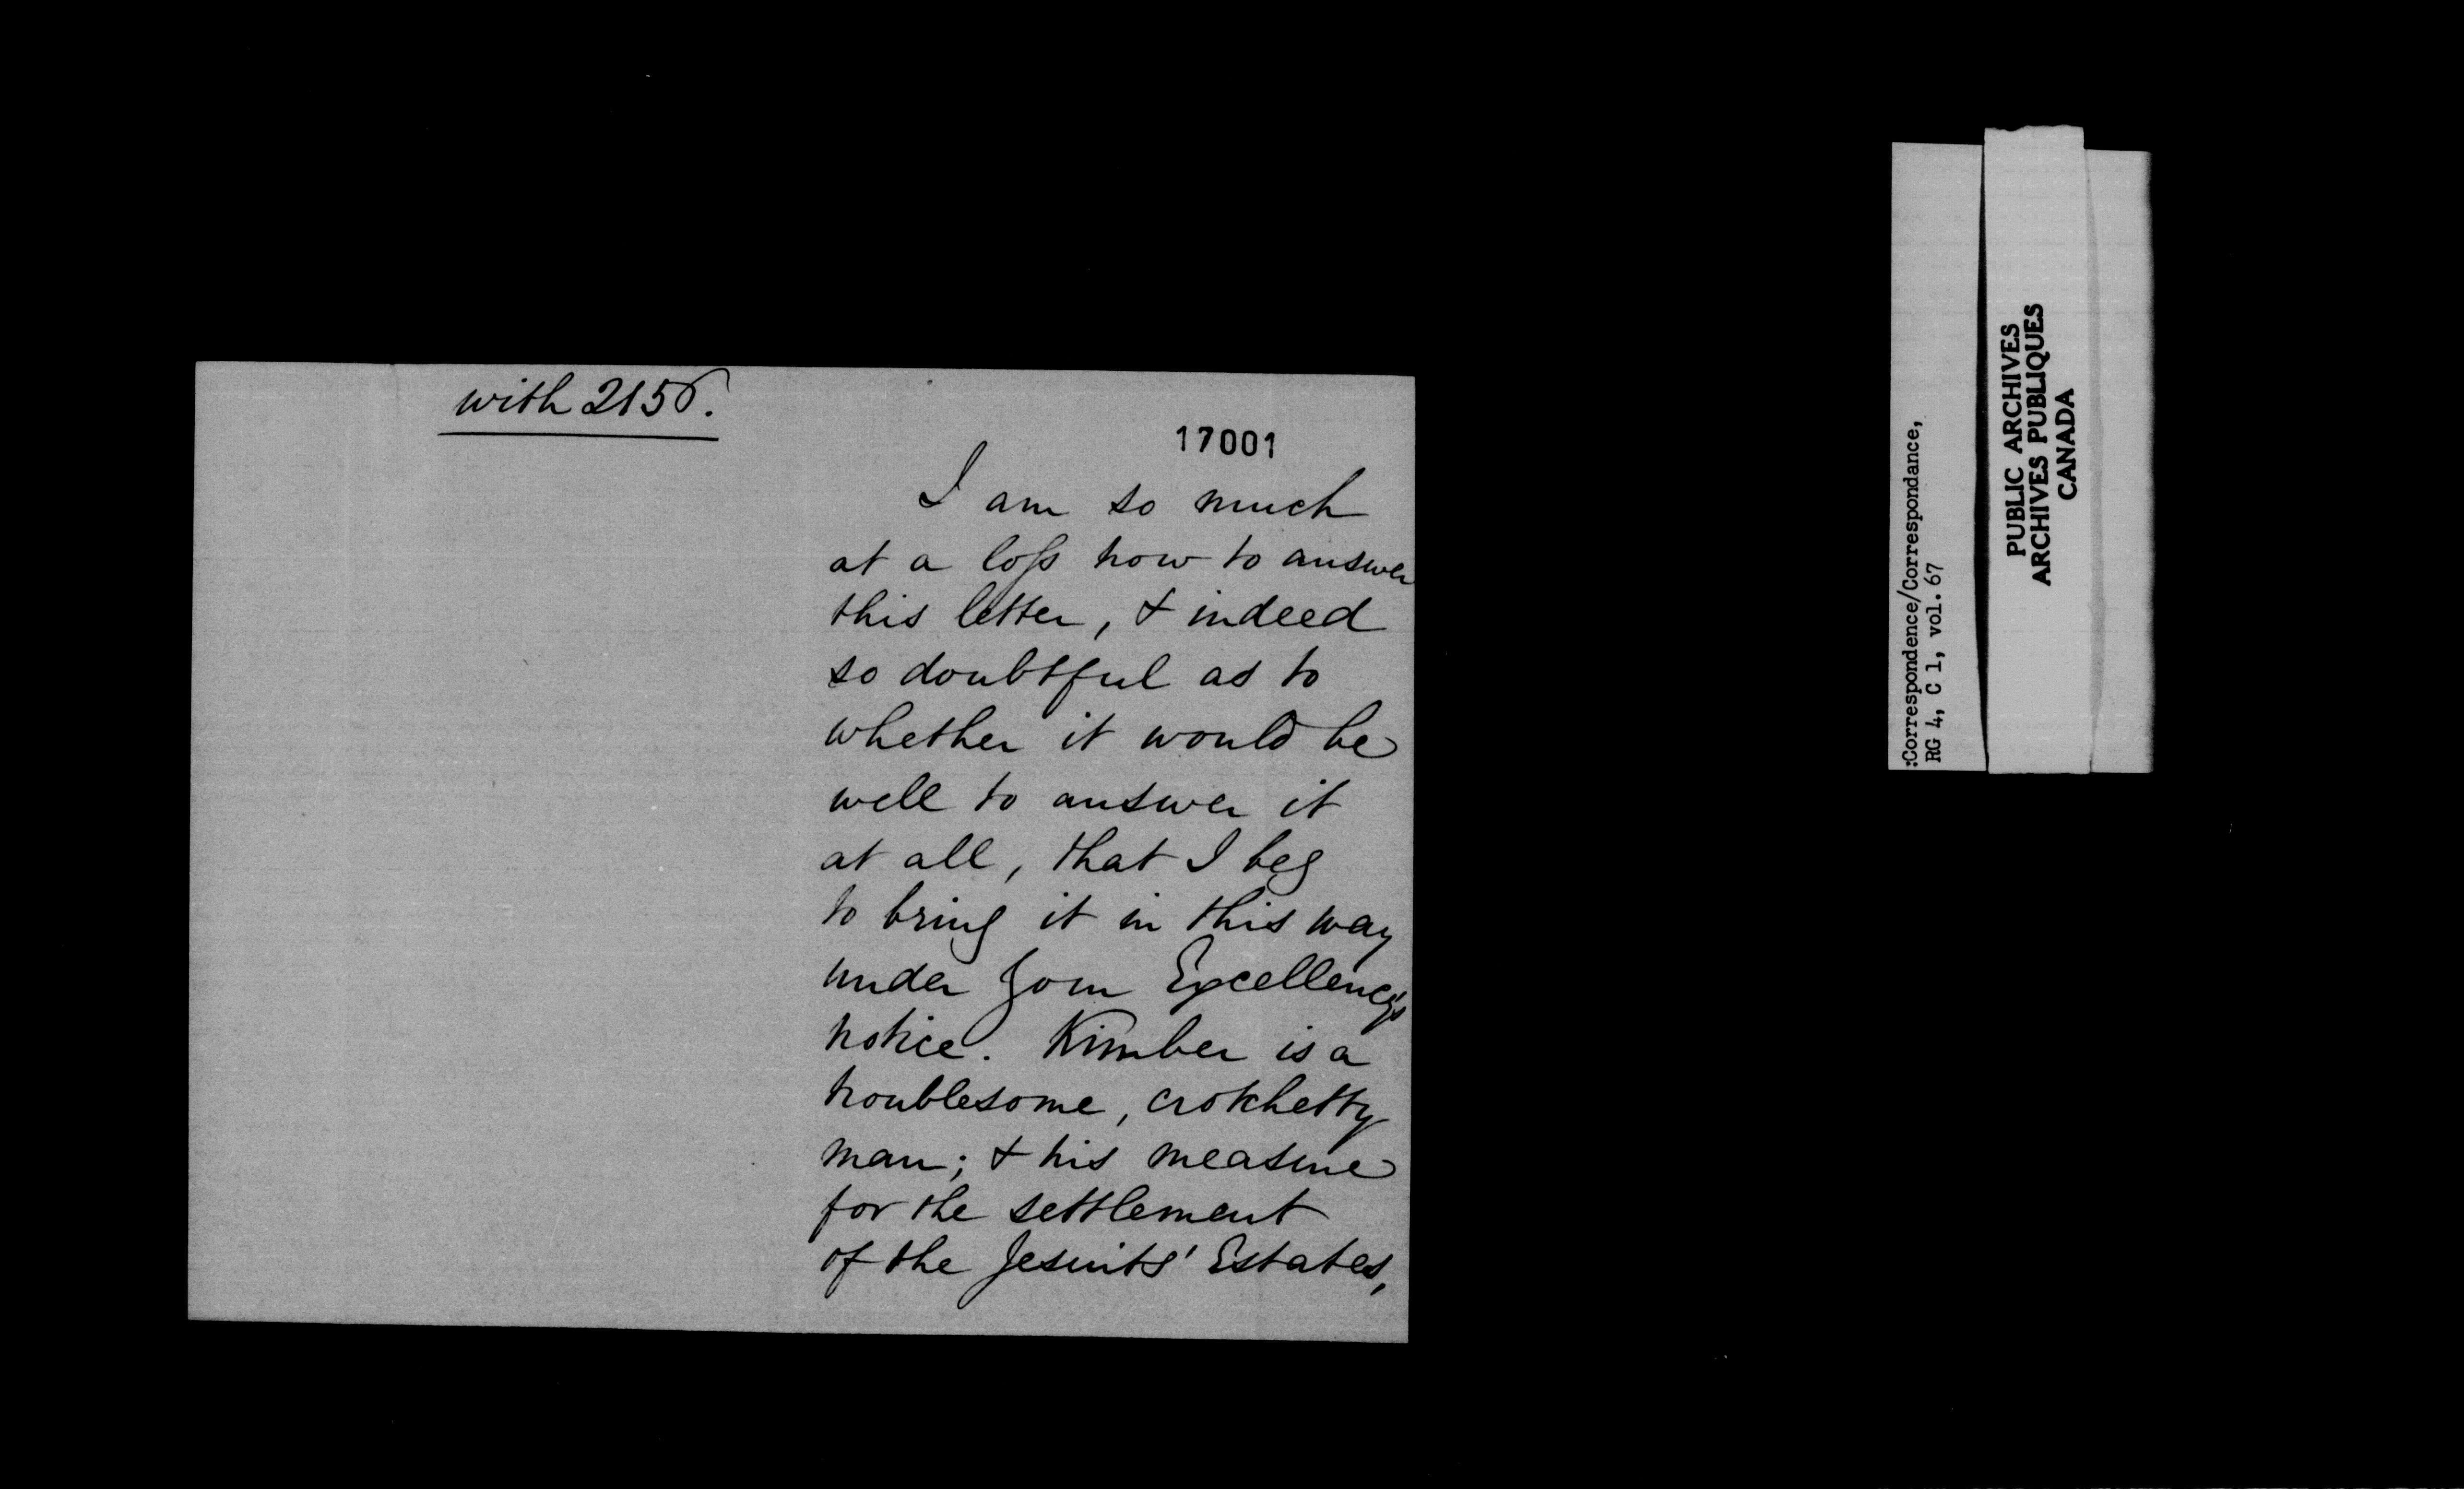 with 2156.
17001
I am so much
at a loſs how to answer
this letter, & indeed
so doubtful as to
whether it would be
well to answer it
at all, that I beg
to bring it in this way
under Your Excellency's
notice. Kimber is a
troublesome, crotchetty
man; & his measure
for the settlement
of the Jesuits' Estates,
:Correspondence/Correspondance,
RG 4, C 1, vol. 67
PUBLIC ARCHIVES
ARCHIVES PUBLIQUES
CANADA